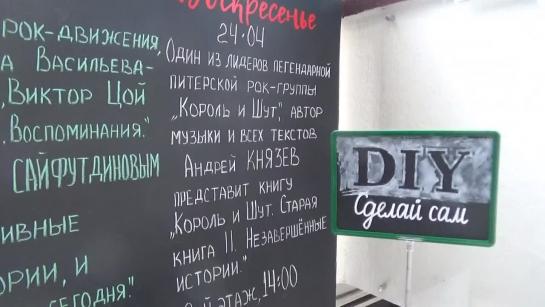 РОК-ДВИЖЕНИЯ,
А ВАСИЛЬЕВА-
"ВИКТОР ЦОЙ
ВОСПОМИНАНИЯ."
САЙФУТДИНОВЫМ
ИВНЫЕ
ОРИИ, И
СЕГОДНЯ."
Воскресенье
24.04
ОДИН ИЗ ЛИДЕРОВ ЛЕГЕНДАРНОЙ
ПИТЕРСКОЙ РОК-ГРУППЫ
„КОРОЛЬ И ШУТ", АВТОР
МУЗЫКИ И ВСЕХ ТЕКСТОВ
АНДРЕЙ КНЯЗЕВ
ПРЕДСТАВИТ КНИГУ
„КОРОЛЬ И ШУТ. СТАРАЯ
КНИГА II. НЕЗАВЕРШЁННЫЕ
ИСТОРИИ."
ЭТАЖ, 14:00
DIY
Сделай сам